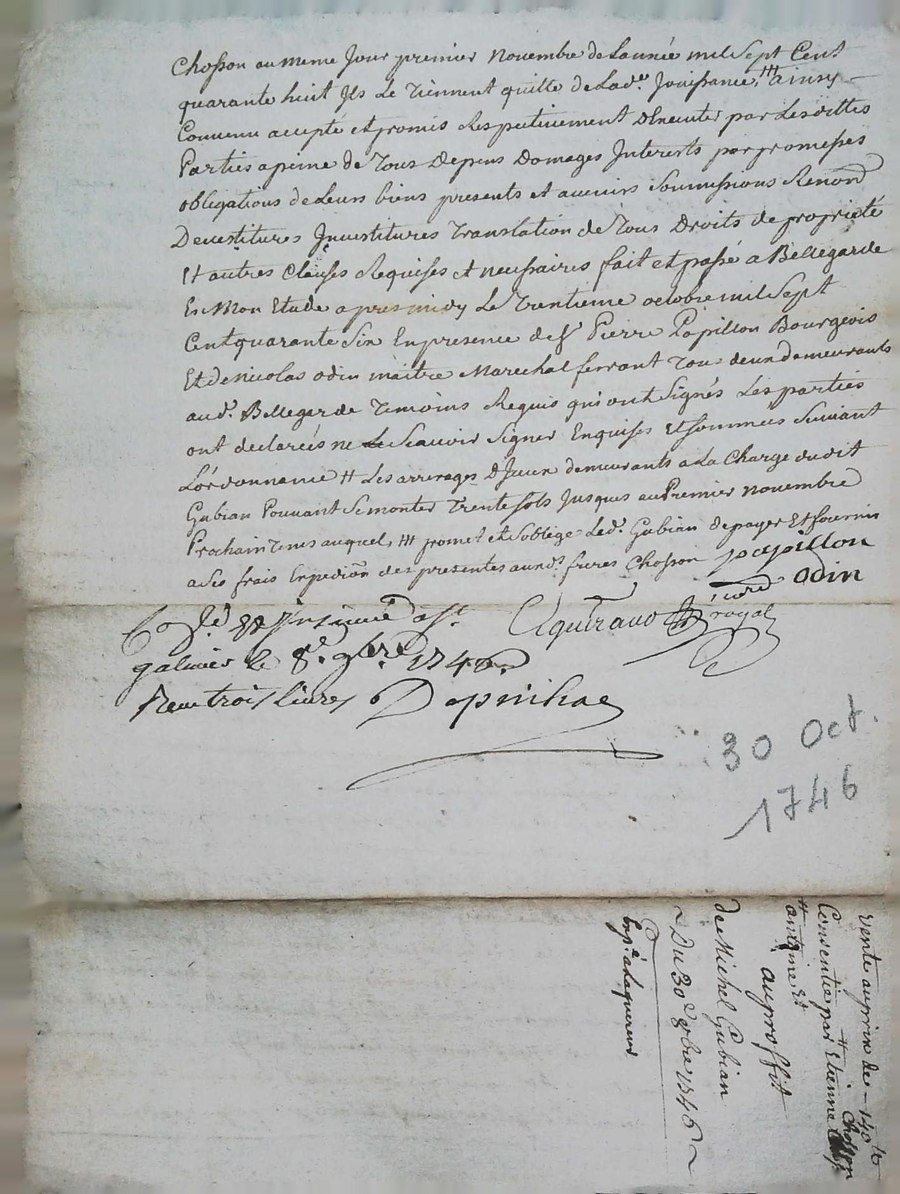 Chosson au meme Jour premier Novembre de Lannée mil Sept Cent
quarante huit Ils Le Tiennent quitte de Lad.e Jouissance, ainsy
Convenu accepté et promis Respectivement D'Executer par Lesdittes
Parties a peine de Tous Depens Domages Interests par promesses
obligations de Leurs biens presents et avenirs Soumissions Renond
Devestitures Investitures Translation de Tous Droits de proprieté
Et autres Clauses Requises et necessaires fait et passé a Bellegarde
En Mon Etude apres midy Le Trentieme octobre mil Sept
Cent quarante Six En presence de Sr Pierre Papillon Bourgeois
Et de Nicolas odin maitre Marechal ferrant Tous deux demeurants
aud. Bellegarde Temoins Requis qui ont Signés Les parties
ont declarées ne Le Scavoir Signer Enquises Et Sommées Suivant
L'ordonnance # Les arrerages D'Iceux demeurants a La Charge dudit
Gubian Pouvant Se monter Trente Sols Jusques au Premier Novembre
Prochain Tems auquel, ### promet et S'oblige Led. Gubian de payer Et fournir
a Ses frais Expedion des presentes auxd. freres Chosson papillon
odin
royal
Conlé et Insinué a St
galmier le 8e 9bre 1746
Reçu trois Livres
30 Oct.
1746
Vente au prix de - 140 #
Consentie par Etienne Chosson
# antoine Et
au proffit
de Michel Gubian
~ Du 30e 8bre 1746 ~
Exp.e a Laquereur